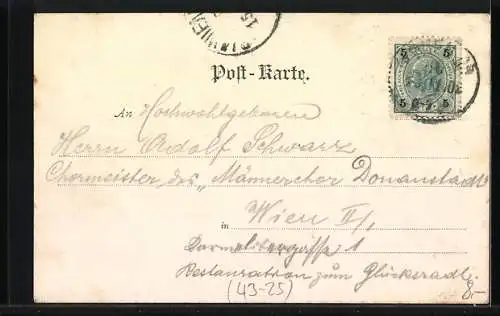 WIEN
15
5 5
5 5
30
Post-Karte.
An Hochwohlgeboren
Herrn Adolf Schwarz
Chormeister des „Männerchor Donaustadt"
in Wien II/1
Karmelitergasse 1
Restauration zum Glücksradl.
(43-25)
8.-